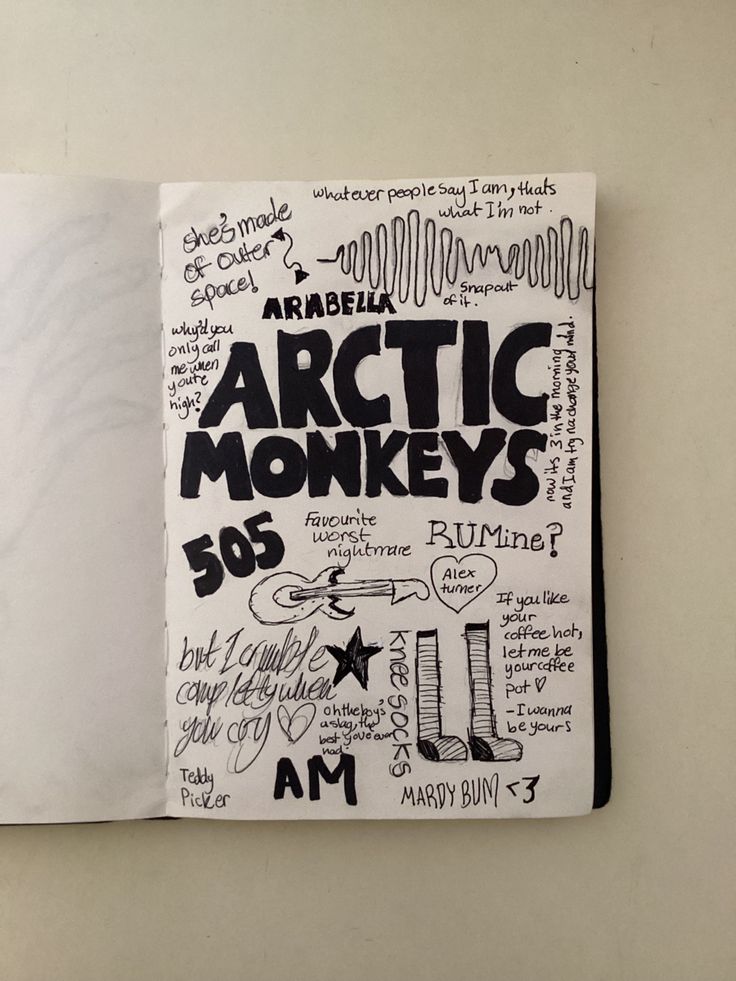 whatever people say I am, thats
what I'm not.
she's made
of outer
space!
Snap out
of it.
ARABELLA
why'd you
only call
me when
you're
high?
ARCTIC
MONKEYS
now its 3 in the morning
and I am tryna change your mind.
505
Favourite
worst
nightmare
R U Mine?
Alex
turner
If you like
your
coffee hot,
let me be
your coffee
pot ♡
- I wanna
be yours
but I crumble
completely when
you cry ♡
oh the boy's
a slag, the
best you've ever
had.
knee socks
Teddy
Picker
AM
MARDY BUM <3